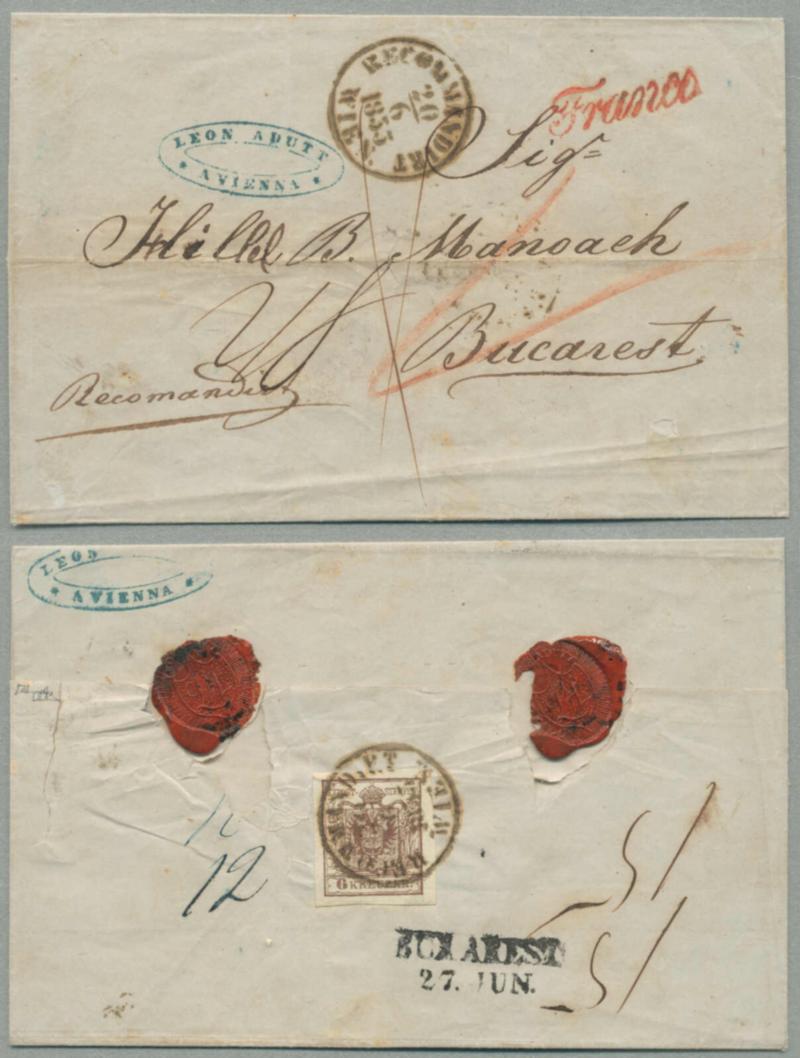 WIEN RECOMMANDIRT
20
6
1853
Franco
LEON ADUTT
A VIENNA
Sigr
Hillel B. Manoach
Bucarest
Recomandirt
LEON
A VIENNA
12
WIEN RECOMMANDIRT
6 KREUZER
BUKAREST
27. JUN.